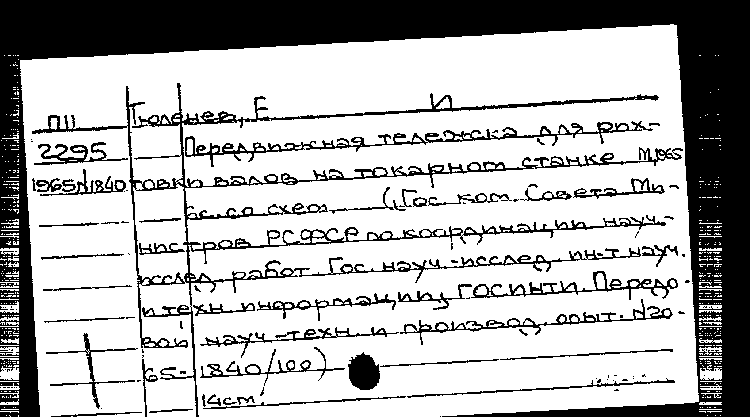 П11 Тюленев, Е И
2295 Передвижная тележка для рих-
1965/1840 товки валов на токарном станке. М,1965
6с. со схем. (Гос ком. Совета Ми-
нистров РСФСР по координации науч.-
исслед. работ. Гос. науч.-исслед. ин-т науч.
и техн. информации ГОСИНТИ. Передо-
вой науч-техн. и производ. опыт. N20-
65-1840/100)
14см.